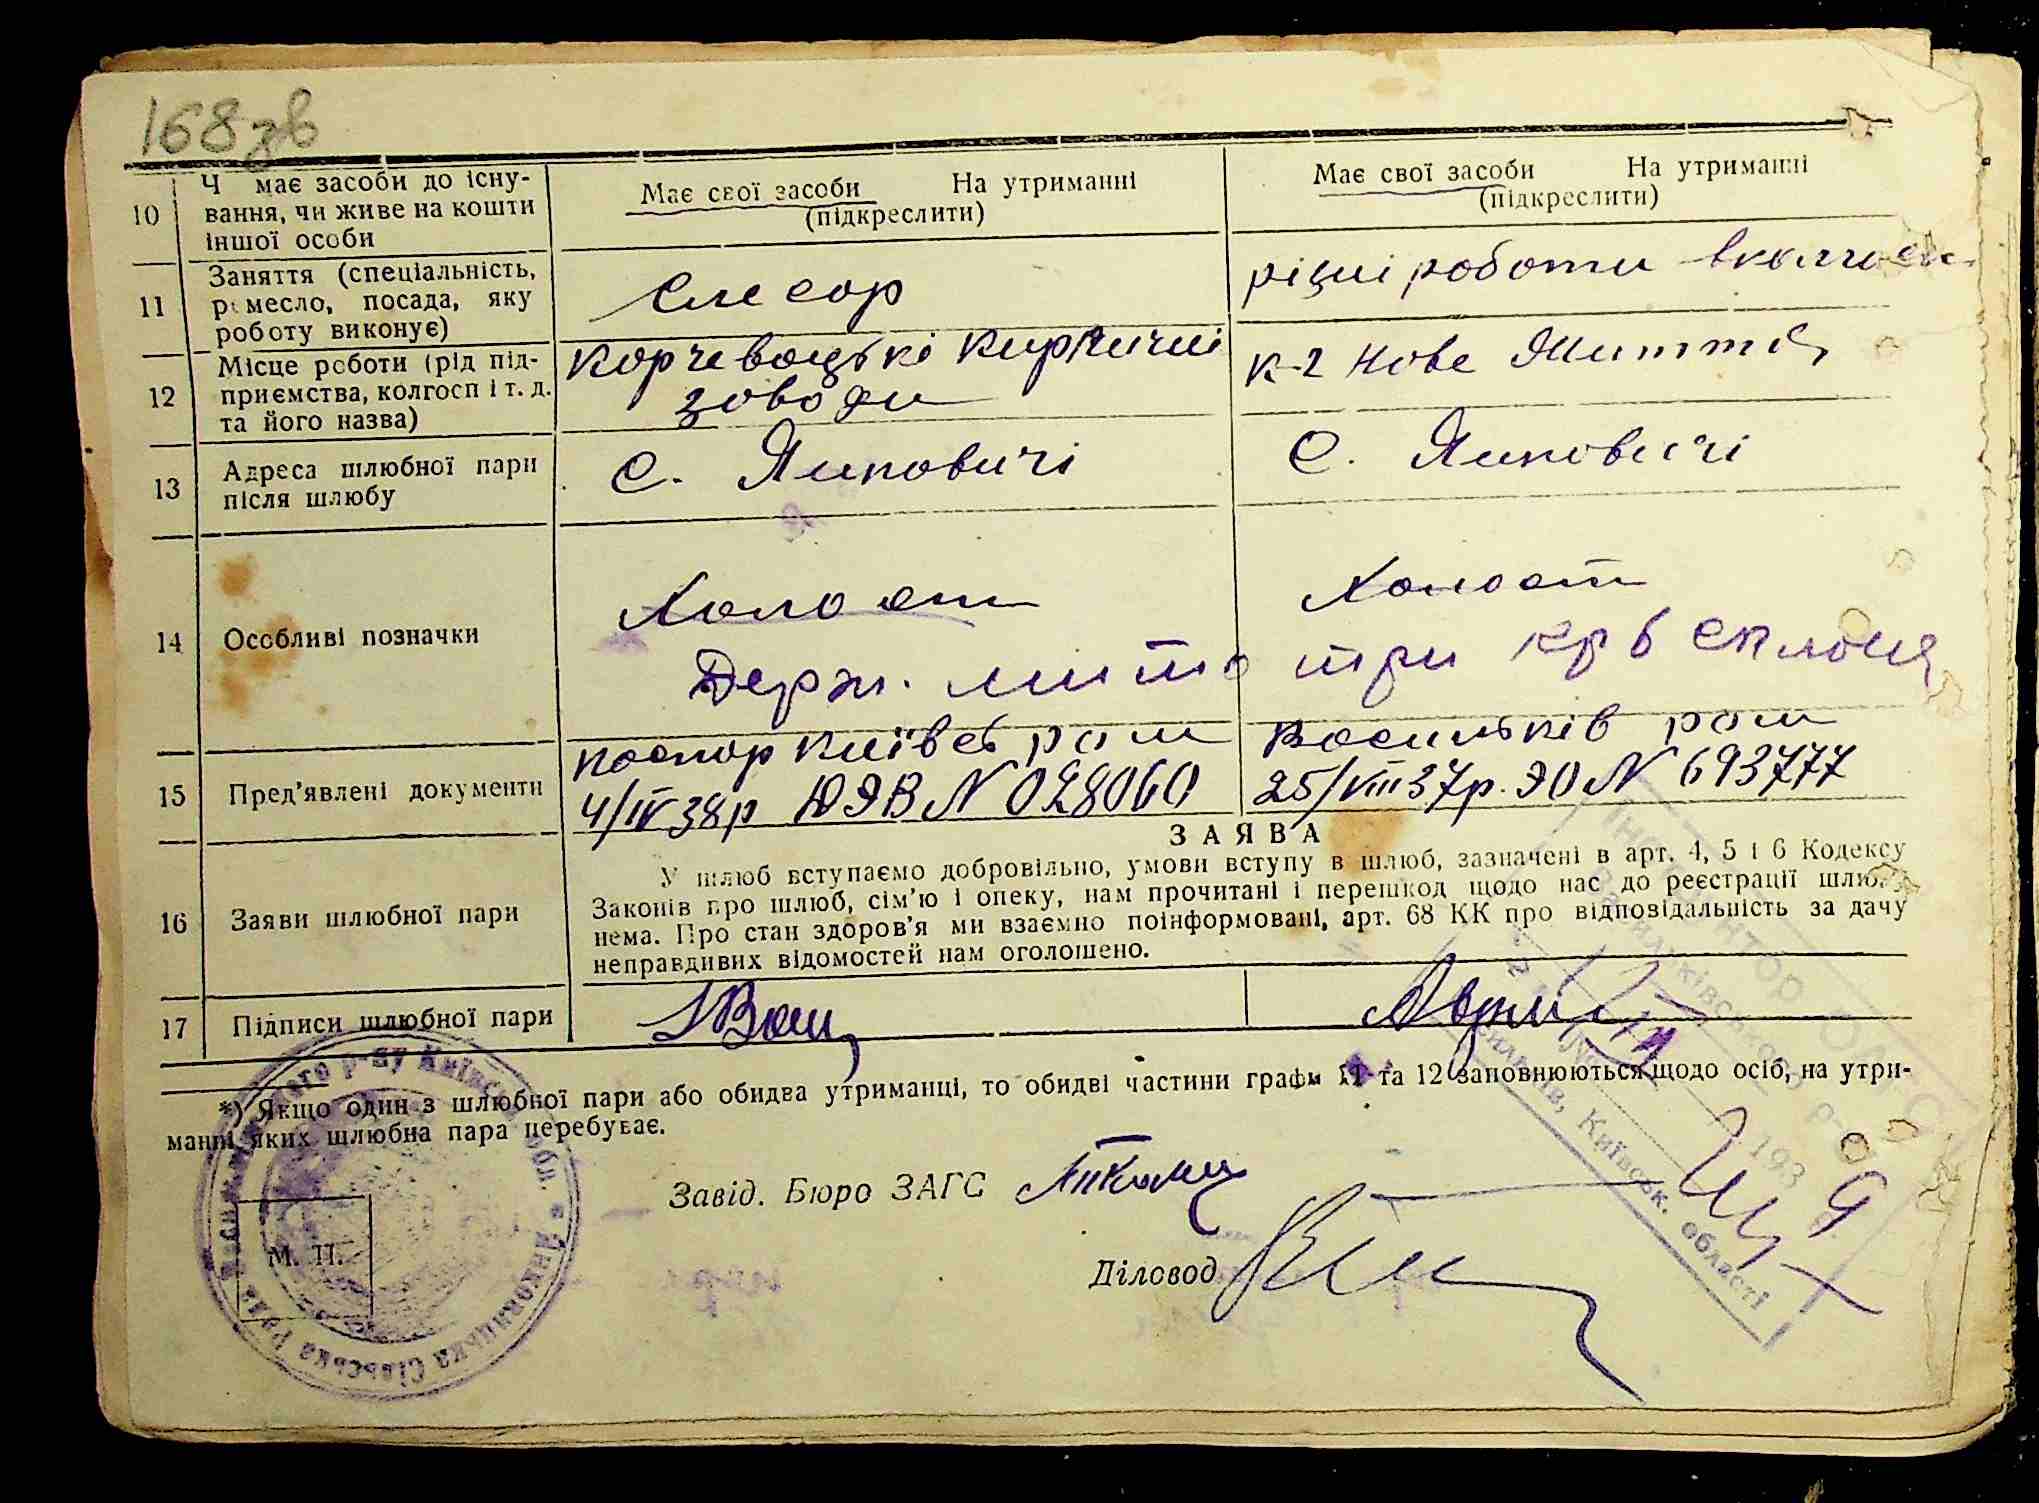 168 зв
10 Ч має засоби до існу-
вання, чи живе на кошти
іншої особи
Має свої засоби На утриманні
(підкреслити)
Має свої засоби На утриманні
(підкреслити)
11 Заняття (спеціальність,
ремесло, посада, яку
роботу виконує)
Слесор
різні роботи в колгоспі
12 Місце роботи (рід під-
приємства, колгосп і т. д.
та його назва)
Корчевоцькі Кирпичні
зоводи
к-г Нове Життя
13 Адреса шлюбної пари
після шлюбу
С. Янковичі
С. Янковичі
14 Особливі позначки
Холост
Холост
Держ. мито три крб сплоче
15 Пред'явлені документи
Поспор Київсь ром
4/IV 38р ЮЭВ N 028060
Восильків ром
25/VIII 37р. ЭО N 693777
16 Заяви шлюбної пари
ЗАЯВА
У шлюб вступаємо добровільно, умови вступу в шлюб, зазначені в арт. 4, 5 і 6 Кодексу
Законів про шлюб, сім'ю і опеку, нам прочитані і перешкод щодо нас до реєстрації шлюбу
нема. Про стан здоров'я ми взаємно поінформовані, арт. 68 КК про відповідальність за дачу
неправдивих відомостей нам оголошено.
17 Підписи шлюбної пари
*) Якщо один з шлюбної пари або обидва утриманці, то обидві частини графи 11 та 12 заповнюються щодо осіб, на утри-
манні яких шлюбна пара перебуває.
Завід. Бюро ЗАГС
Діловод
М. П.
р-ну Київськ. обл.
Янковицька Сільська рада
Васильків, Київськ. області
193